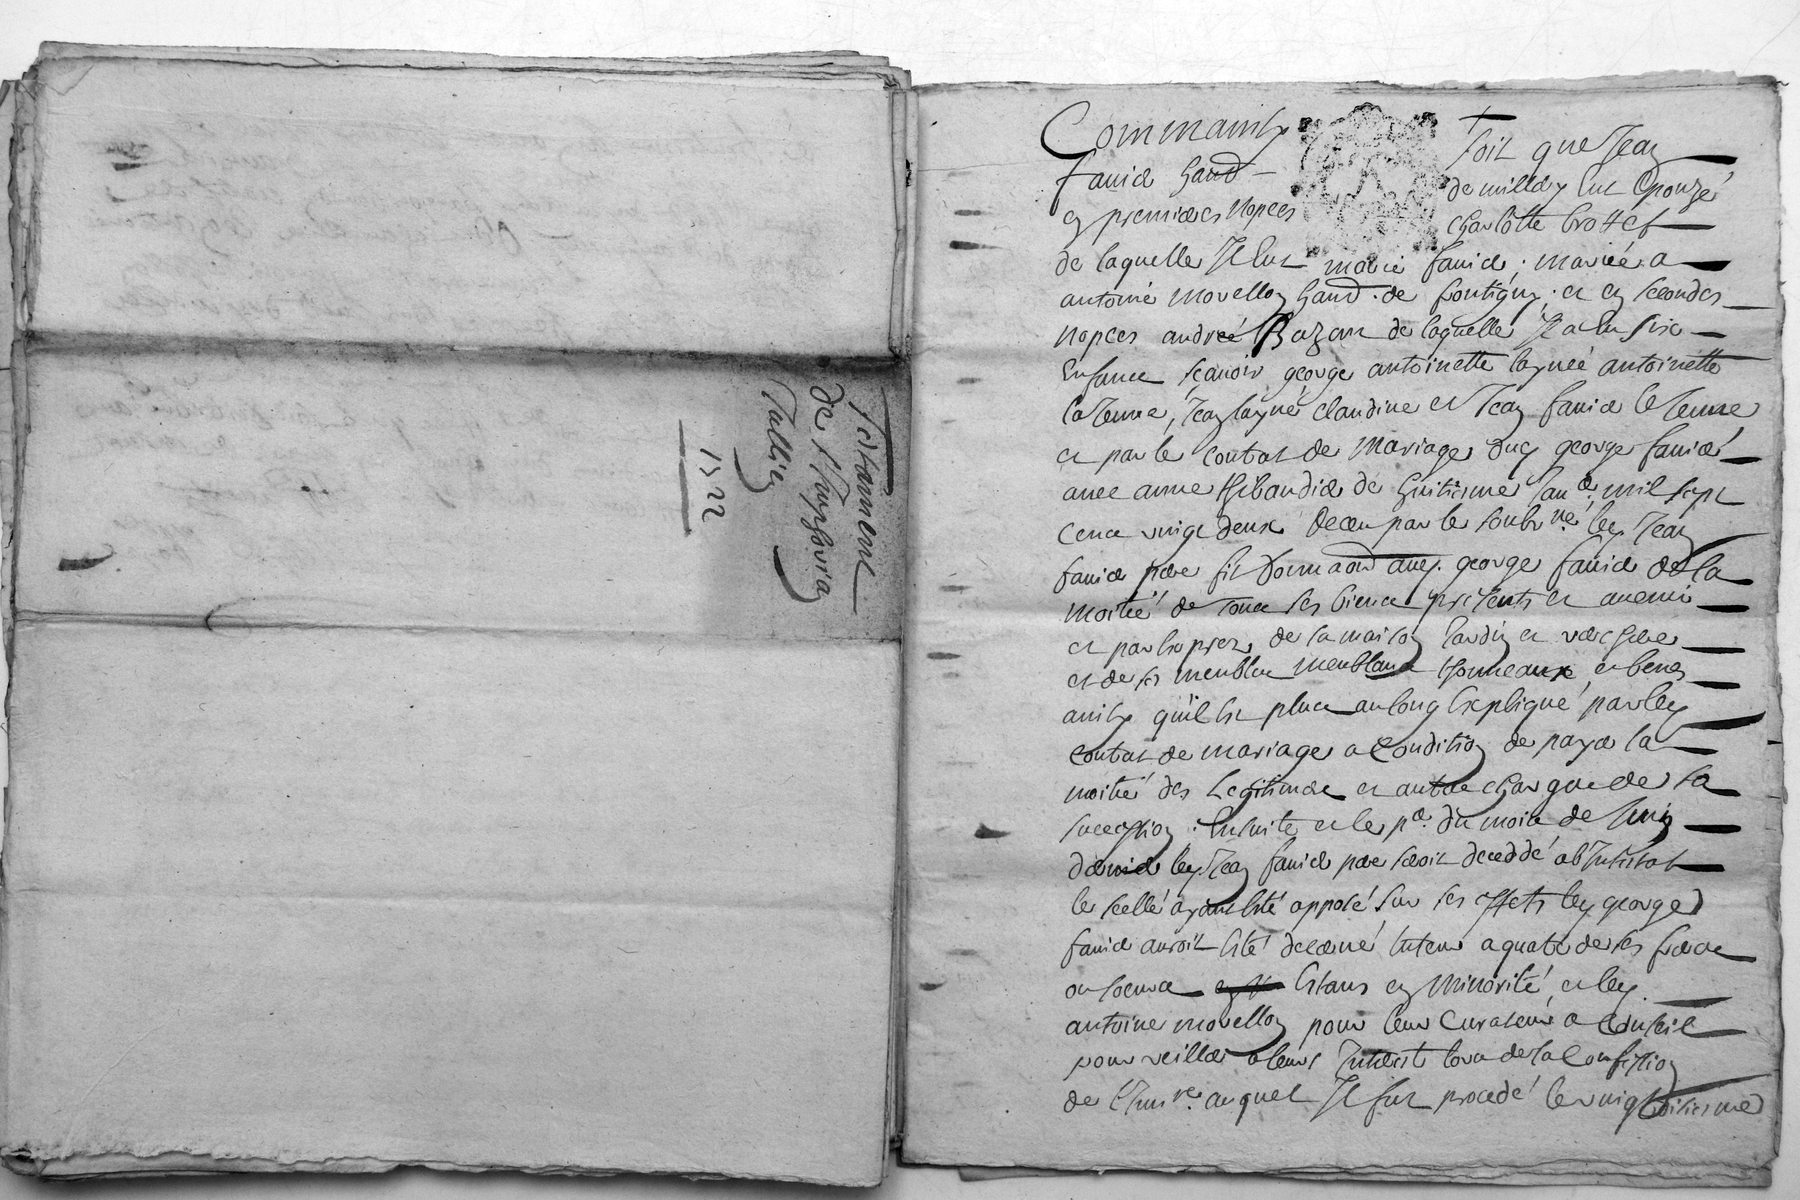 Testament
de
Tallier
1722
Comme ainsy soit que Jean
favier habt de millery eut Epouzé
en premieres nopces charlotte brottet
de laquelle Il eut marie favier, mariée a
antoine morellon habt de et en secondes
nopces andreé Bazan de laquelle Il a eu six
Enfance scavoir george antoinette laynée antoinette
la Jeune, Jean layné claudine et Jean favier le Jeune
et par le contrat de mariage dud george favier
avec anne du huitieme Janer mil sept
cent vingt deux receu par le soubzné led Jean
favier pere fit donnaon aud. george favier de la
moitié de tous ses biens presents et avenir
et par de sa maison Jardin et
et de ses meubles meublans et
ainsy quil est plus au long Expliqué par led
contrat de mariage a condition de payer la
moitié des Legitimes et autre charges de sa
succession. Ensuite et le pr. du mois de Juin
dernier led Jean favier pere seroit decedé abIntestat
le scellé ayant esté apposé sur ses effets led george
favier auroit esté decerné tuteur a quatre de ses freres
ou soeurs Estans en Minorité, et led.
antoine morellon pour leur Curateur a conseil
pour veiller a leurs Interest lors de la Confession
de auquel Il fut procedé le vingthuitieme